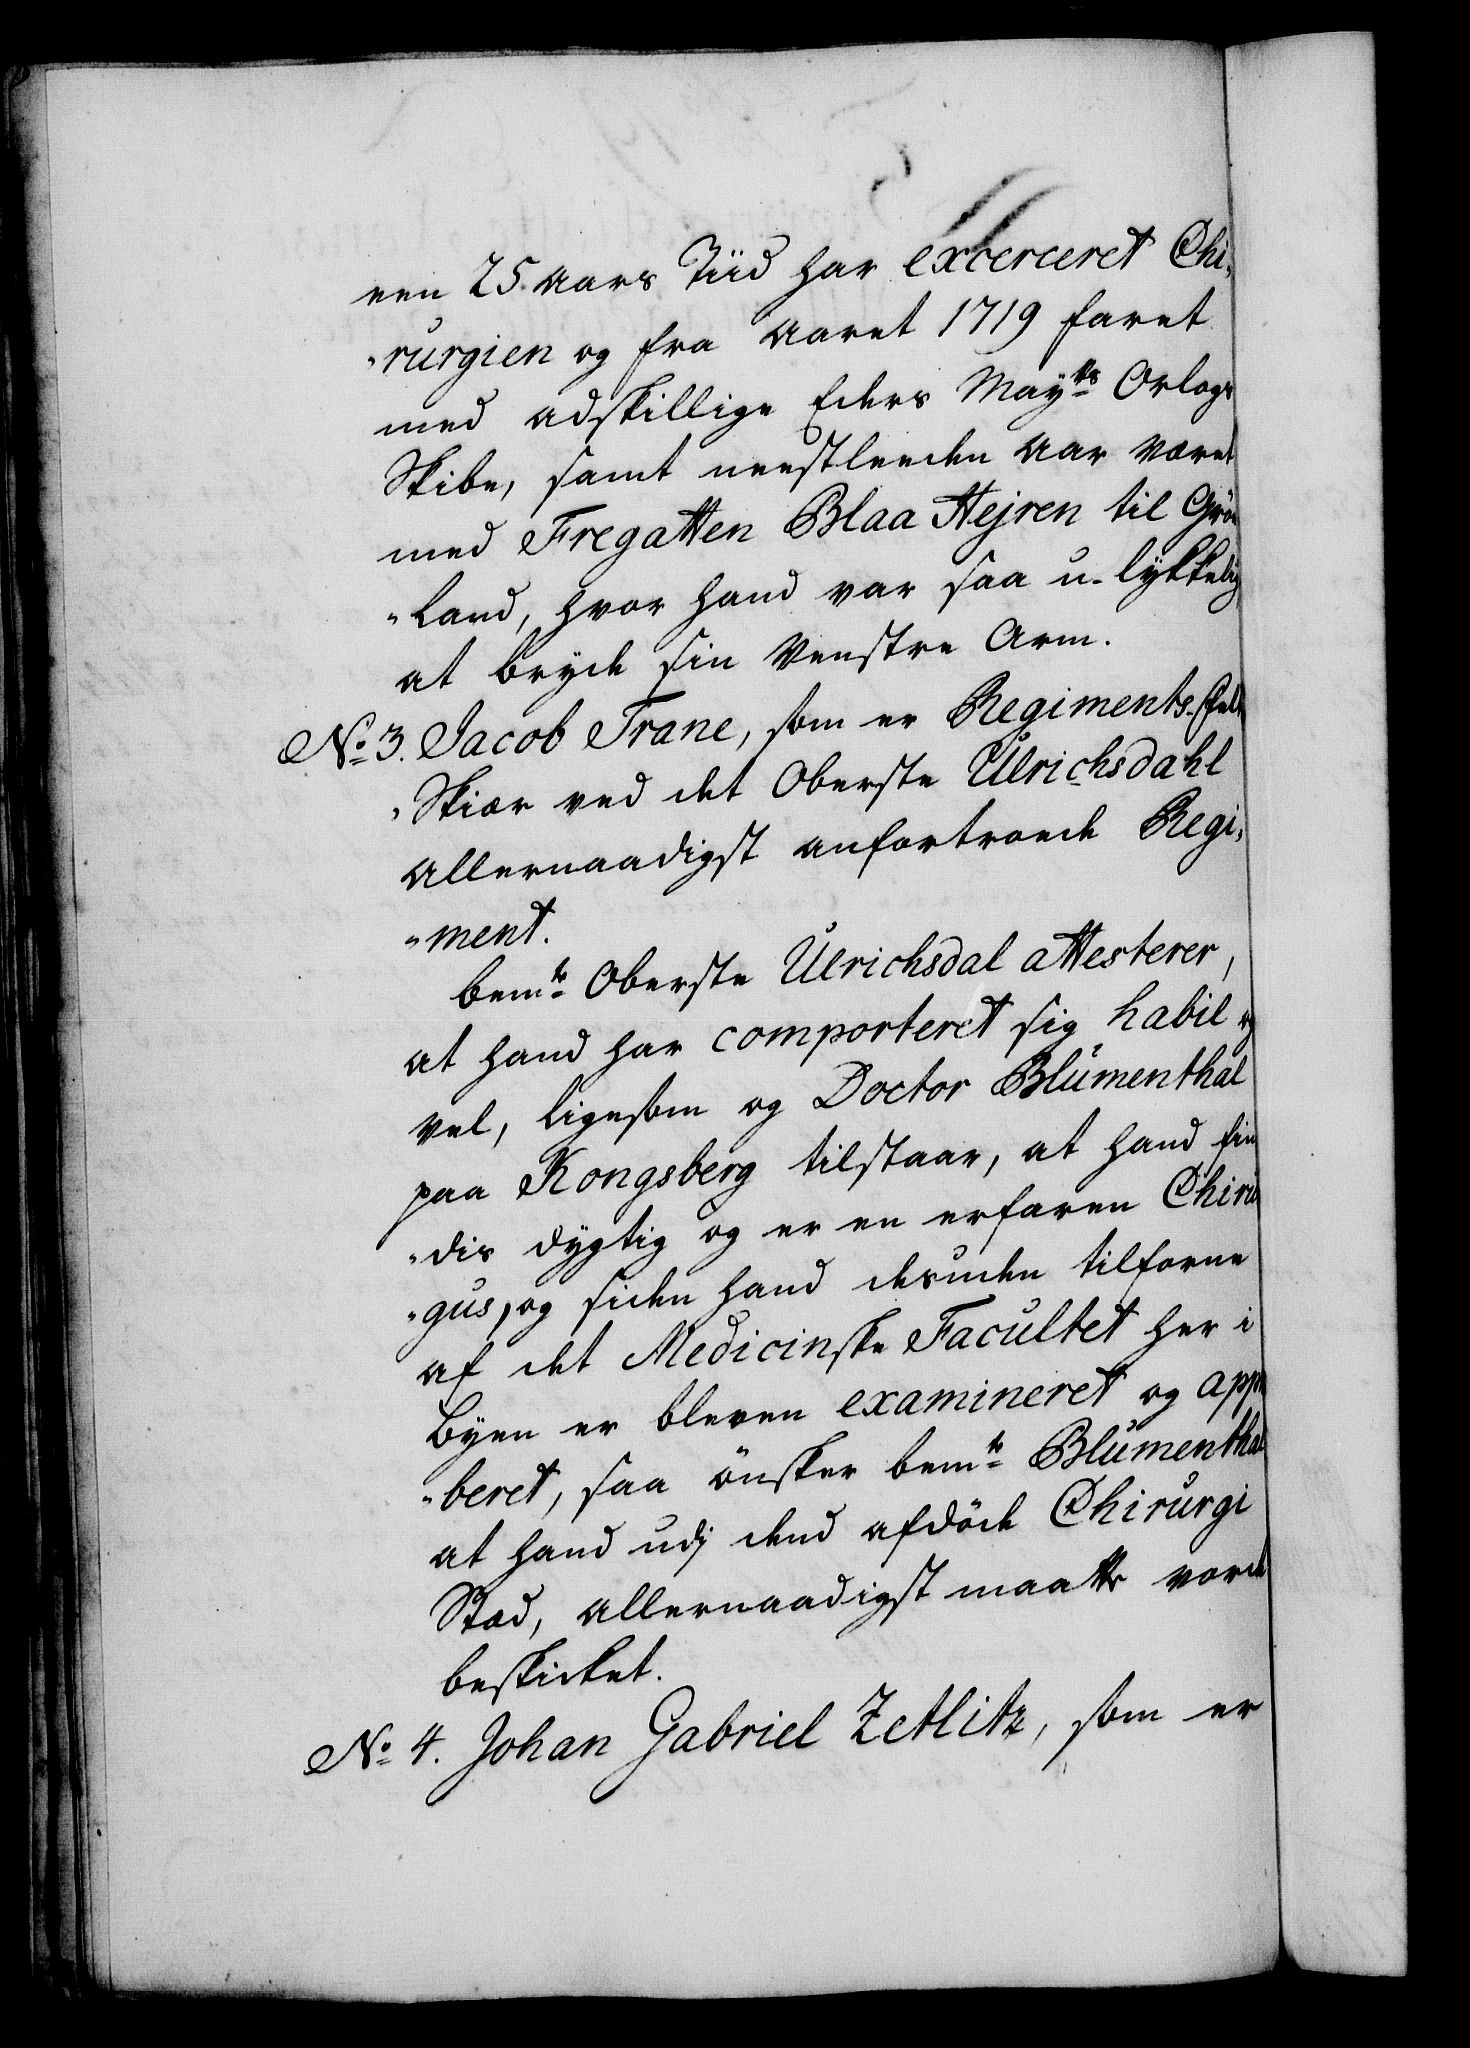 een 25. Aars Tiid har excerceret Chi,,
,,rurgien og fra Aaret 1719 faret
med adskillige Eders Mayts Orlogs
Skibe, samt neestleeden Aar været
med Fregatten Blaa Hejren til Grön
,,land, hvor hand var saa u-lykkelig
at bryde sin Venstre Arm.
No 3. Jacob Trane, som er Regiments-Felt
,,Skiær ved det Oberste Ulrichsdahl
allernaadigst anfortroede Regi,,
,,ment.
bemte Oberste Ulrichsdal attesterer,
at hand har comporteret sig habil og
vel, ligesom og Doctor Blumenthal
paa Kongsberg tilstaar, at hand fin
,,dis dygtig og er en erfaren Chirur
,,gus, og siden hand desuden tilforne
af det Medicinske Facultet her i
Byen er bleven examineret og appro
,,beret, saa önsker bemte Blumenthal
at hand udj dend afdöde Chirurgi
Stæd, allernaadigst maatte vorde
beskicket.
No 4. Johan Gabriel Zetlitz, som er